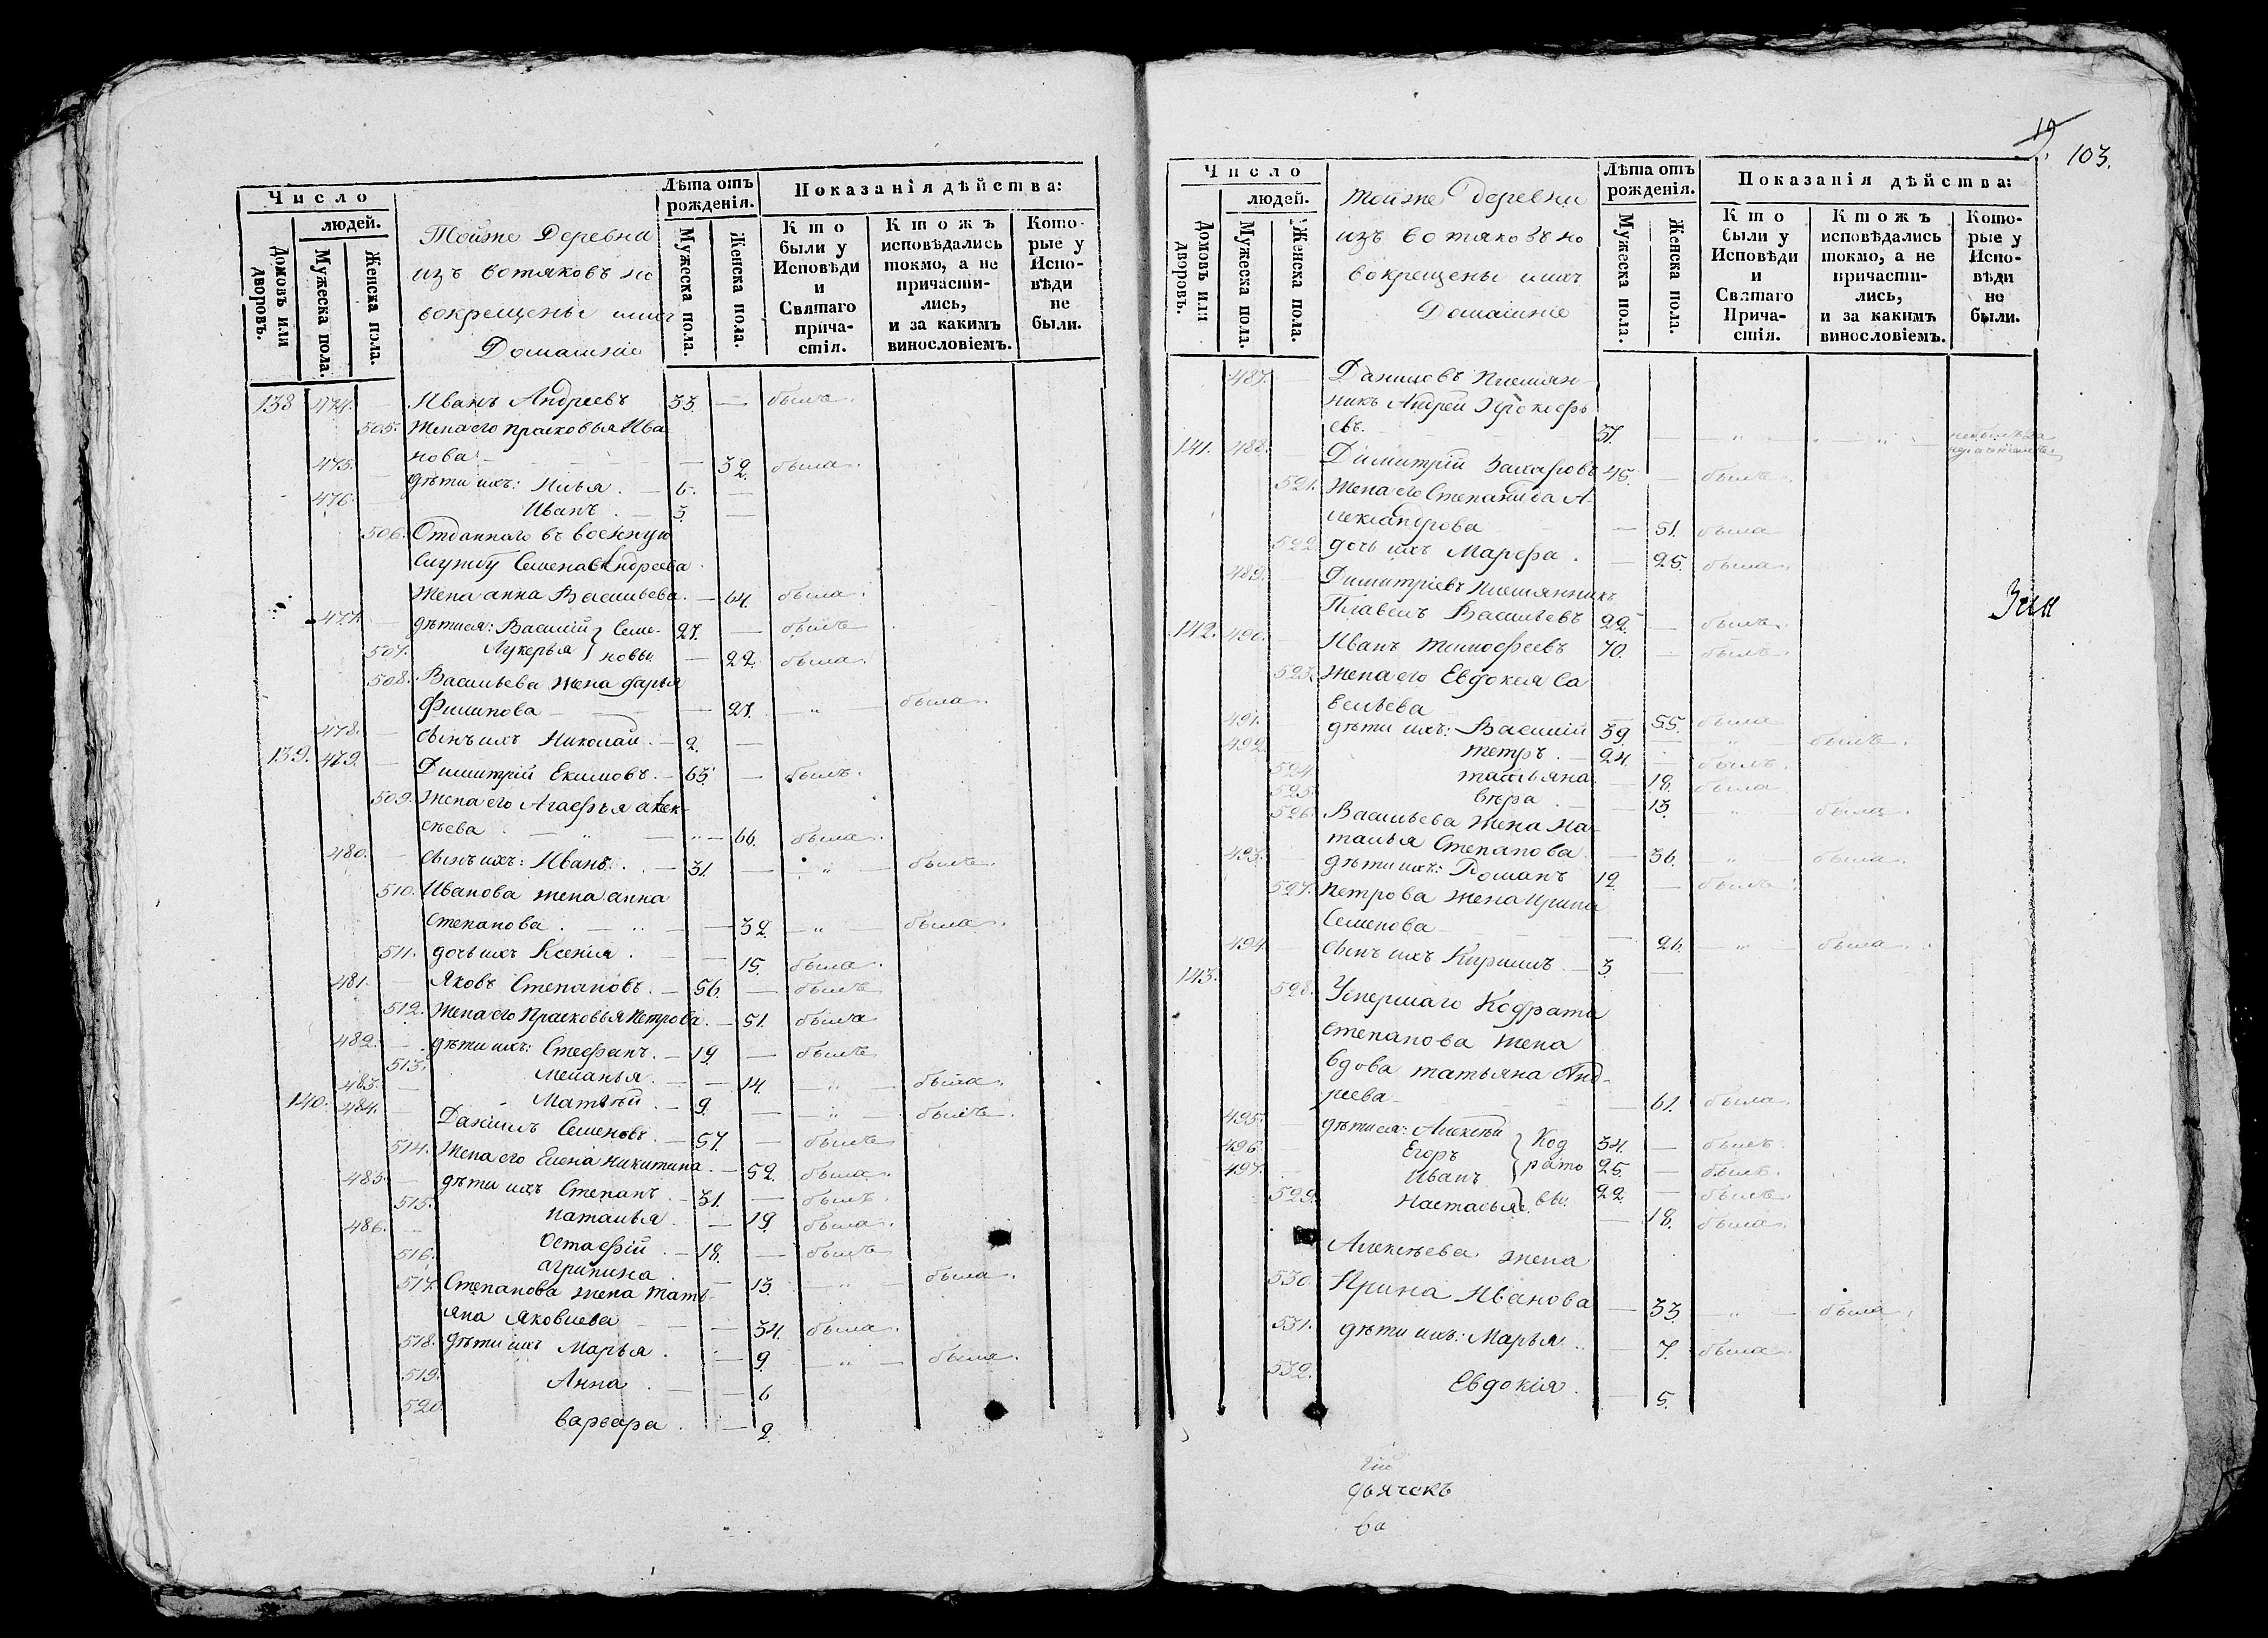 Число
людей.
Домовъ или дворовъ.
Мужеска пола.
Женска пола.
Тойже Деревна
изъ вотяковъ но
вокрещены ихъ
Домашніе
Лѣта отъ рожденія.
Мужеска пола.
Женска пола.
Показанія дѣйства:
Кто были у Исповѣди и Святаго причастія.
Ктожъ исповѣдались токмо, а не причастились, и за какимъ винословіемъ.
Которые у Исповѣди не были.
138 474. — Иванъ Андреевъ 33. — былъ.
505. Жена его Прасковья Ива
нова — — 32. была.
475. — дѣти ихъ: Илья. — 6. —
476. Иванъ. — 3. —
506. Отданнаго въ военную
службу Семена Андреева
Жена анна Васильева. — 64. была.
477. дѣти ея: Василій } Семе- 27. — былъ
507. Лукерья } новы — 22. была.
508. Васильева жена дарья
Филипова — — 27. — „ — была.
478. — сынъ ихъ Николай. — 2. —
139. 479. — Димитрій Екимовъ. — 63. — былъ.
509. Жена его Агафья алек-
сѣева — „ — 66. была.
480. — сынъ ихъ: Иванъ. — 31. — „ — былъ.
510. Иванова жена анна
степанова. — „ — 32. — „ — была.
511. дочь ихъ Ксенія. — 15. была.
481. — Яковъ Степановъ. — 56. — былъ
512. Жена его Прасковья Петрова. — 51. была
482. — дѣти ихъ: Стефанъ. — 19. — былъ
513. Меланья. — — 14. „ — была.
483. — Матвѣй. — 9. — „ — былъ.
140. 484. — Даніилъ Семеновъ. — 57. — былъ
514. Жена его Елена никитина. — 52. была.
485. — дѣти ихъ Степанъ. — 31. — былъ.
515. Наталья. — 19. была.
486. — Остафій. — 18. — былъ
516. агрипина. — 13. — „ — была.
517. Степанова жена тать-
яна яковлева — — 34. была.
518. дѣти ихъ Марья. — 9. — „ — была.
519. Анна. — — 6
520. варвара. — 2.
19
103.
Число
людей.
Домовъ или дворовъ.
Мужеска пола.
Женска пола.
Тойже деревни
изъ вотяковъ но
вокрещены ихъ
Домашніе
Лѣта отъ рожденія.
Мужеска пола.
Женска пола.
Показанія дѣйства:
Кто были у Исповѣди и Святаго Причастія.
Ктожъ исповѣдались токмо, а не причастились, и за какимъ винословіемъ.
Которые у Исповѣди не были.
487. — Даниловъ племян-
никъ Андрей Прокофь
евъ. — 37. — „ — „ — небылъ за
141. 488. Димитрій Захаровъ 45. — былъ.
521. Жена его Степанида А-
лександрова — 51. была
522. дочь ихъ Марефа. — 25. была.
489. — Димитріевъ племянникъ
Павелъ Васильевъ 22. — былъ.
142. 490. — Иванъ Тимофеевъ 70. — былъ.
523. Жена его Евдокея Са
вельева — 55. была
491. — дѣти ихъ: Василій 39. — „ — былъ.
492. Петръ. — 24. — былъ.
524. татьяна. — 18. была
525. вѣра. — — 13. — „ — была.
526. Васильева жена На-
талья Степанова. — 36. — „ — была.
493. — дѣти ихъ: Романъ 12. — былъ.
527. Петрова жена Ирина
Семенова — — 26. — „ — была.
494. — сынъ ихъ Кирилъ. — 3. —
143. 528. Умершаго Кодрата
степанова жена
вдова татьяна Анд-
реева — — 61. была.
495. дѣти ея: Алексѣй } Код 34. — былъ.
496. — Егоръ } рато 25. — былъ.
497. — Иванъ } вы. 22. — былъ.
529. Настасья — 18. была.
Алексѣева жена
530. Ирина Иванова — 33. — „ — была.
531. дѣти ихъ: Марья. — 7. была
532. Евдокія. — 5.
дьячекъ